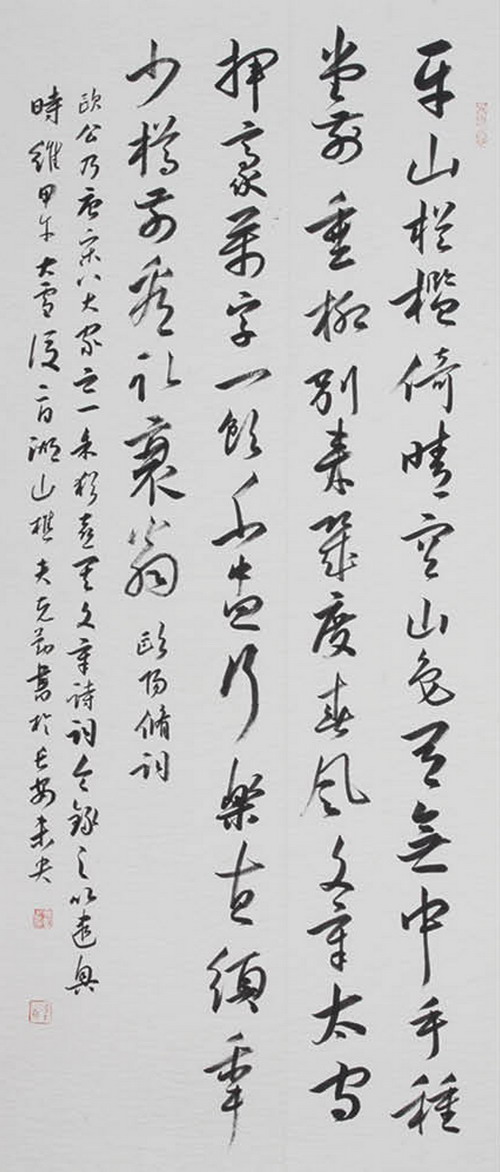 平山栏槛倚晴空山色有無中手種
堂前垂柳别來幾度春风文章太守
揮毫萬字一飲千盅行樂直須年
少樽前看取衰翁 歐陽脩詞
歐公乃唐宋八大家之一余猶喜其文章詩詞今錄之以遣興
時維甲午大雪後二日湖山樵夫克勤書於長安未央